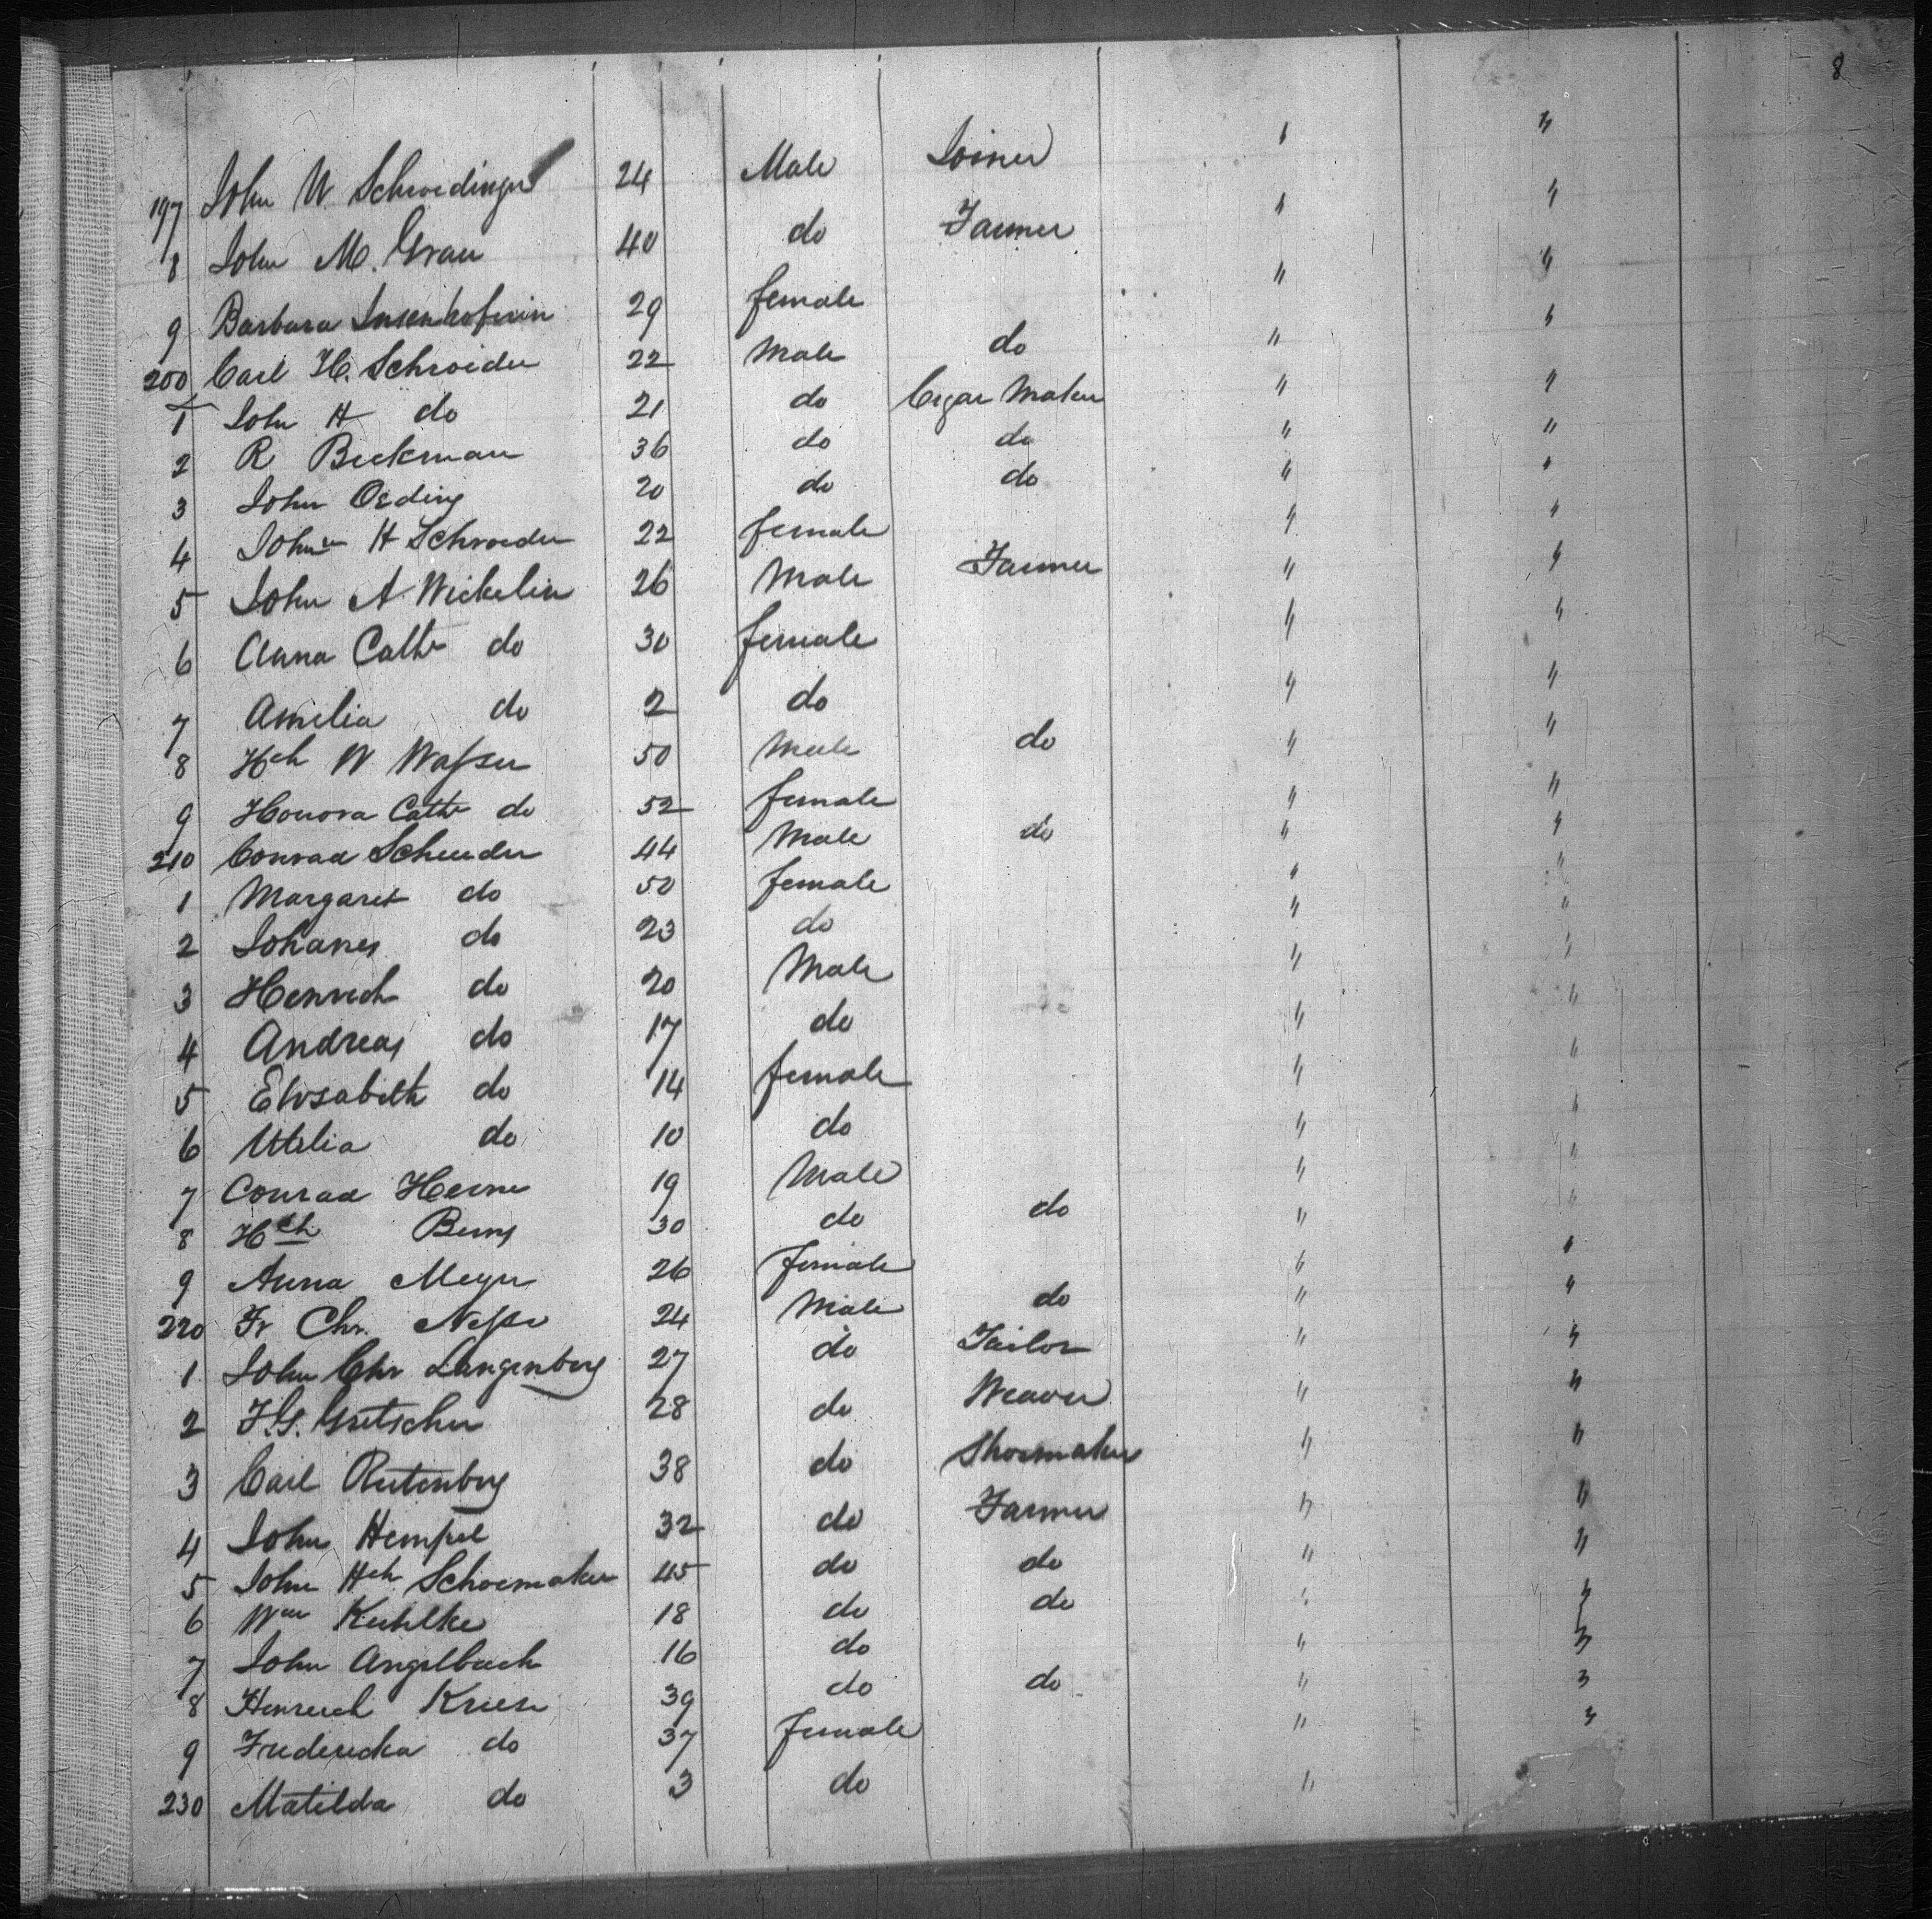 8
197 John W Schroedinger 24 Male Joiner " "
8 John M. Grau 40 do Farmer " "
9 Barbara 29 female " "
200 Carl H. Schroider 22 Male do " "
1 John H do 21 do Cigar Maker " "
2 R Beckman 36 do do " "
3 John Oeding 20 do do " "
4 John H Schroeder 22 female " "
5 John A Wickelin 26 Male Farmer " "
6 Anna Cath do 30 female " "
7 Amelia do 2 do " "
8 Hch W Wasser 50 Male do " "
9 Honora Cath do 52 female " "
210 Conrad Schneider 44 Male do " "
1 Margaret do 50 female " "
2 Johanes do 23 do " "
3 Henrich do 20 Male " "
4 Andreas do 17 do " "
5 Elisabeth do 14 female " "
6 Utelia do 10 do " "
7 Conrad Heine 19 Male " "
8 Hch Bems 30 do do " "
9 Anna Meyer 26 female " "
220 Fr Chr. Nesse 24 Male do " "
1 John Chr Langenberg 27 do Tailor " "
2 F.G. Gretscher 28 do Weaver " "
3 Carl Rutenberg 38 do Shoemaker " "
4 John Hempel 32 do Farmer " "
5 John Hch Schoemaker 45 do do " "
6 Wm Kuhlke 18 do do " "
7 John Angelbeck 16 do " "
8 Henreich Kriese 39 do do " "
9 Fredericka do 37 female " "
230 Matilda do 3 do "